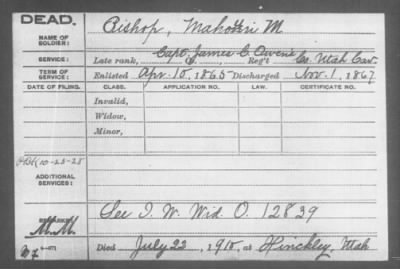 DEAD.
NAME OF SOLDIER: Bishop, Mahonri M.
Capt. James C. Owens
SERVICE: Late rank, Reg't Co. Utah Cav.
TERM OF SERVICE: Enlisted Apr. 10, 1865 Discharged Nov. 1, 1867
DATE OF FILING. CLASS. APPLICATION NO. LAW. CERTIFICATE NO.
Invalid,
Widow,
Minor,
10-23-28
ADDITIONAL SERVICES:
REMARKS: See I. W. Wid. O. 12839
M.M.
Died July 22, 1910, at Hinckley, Utah